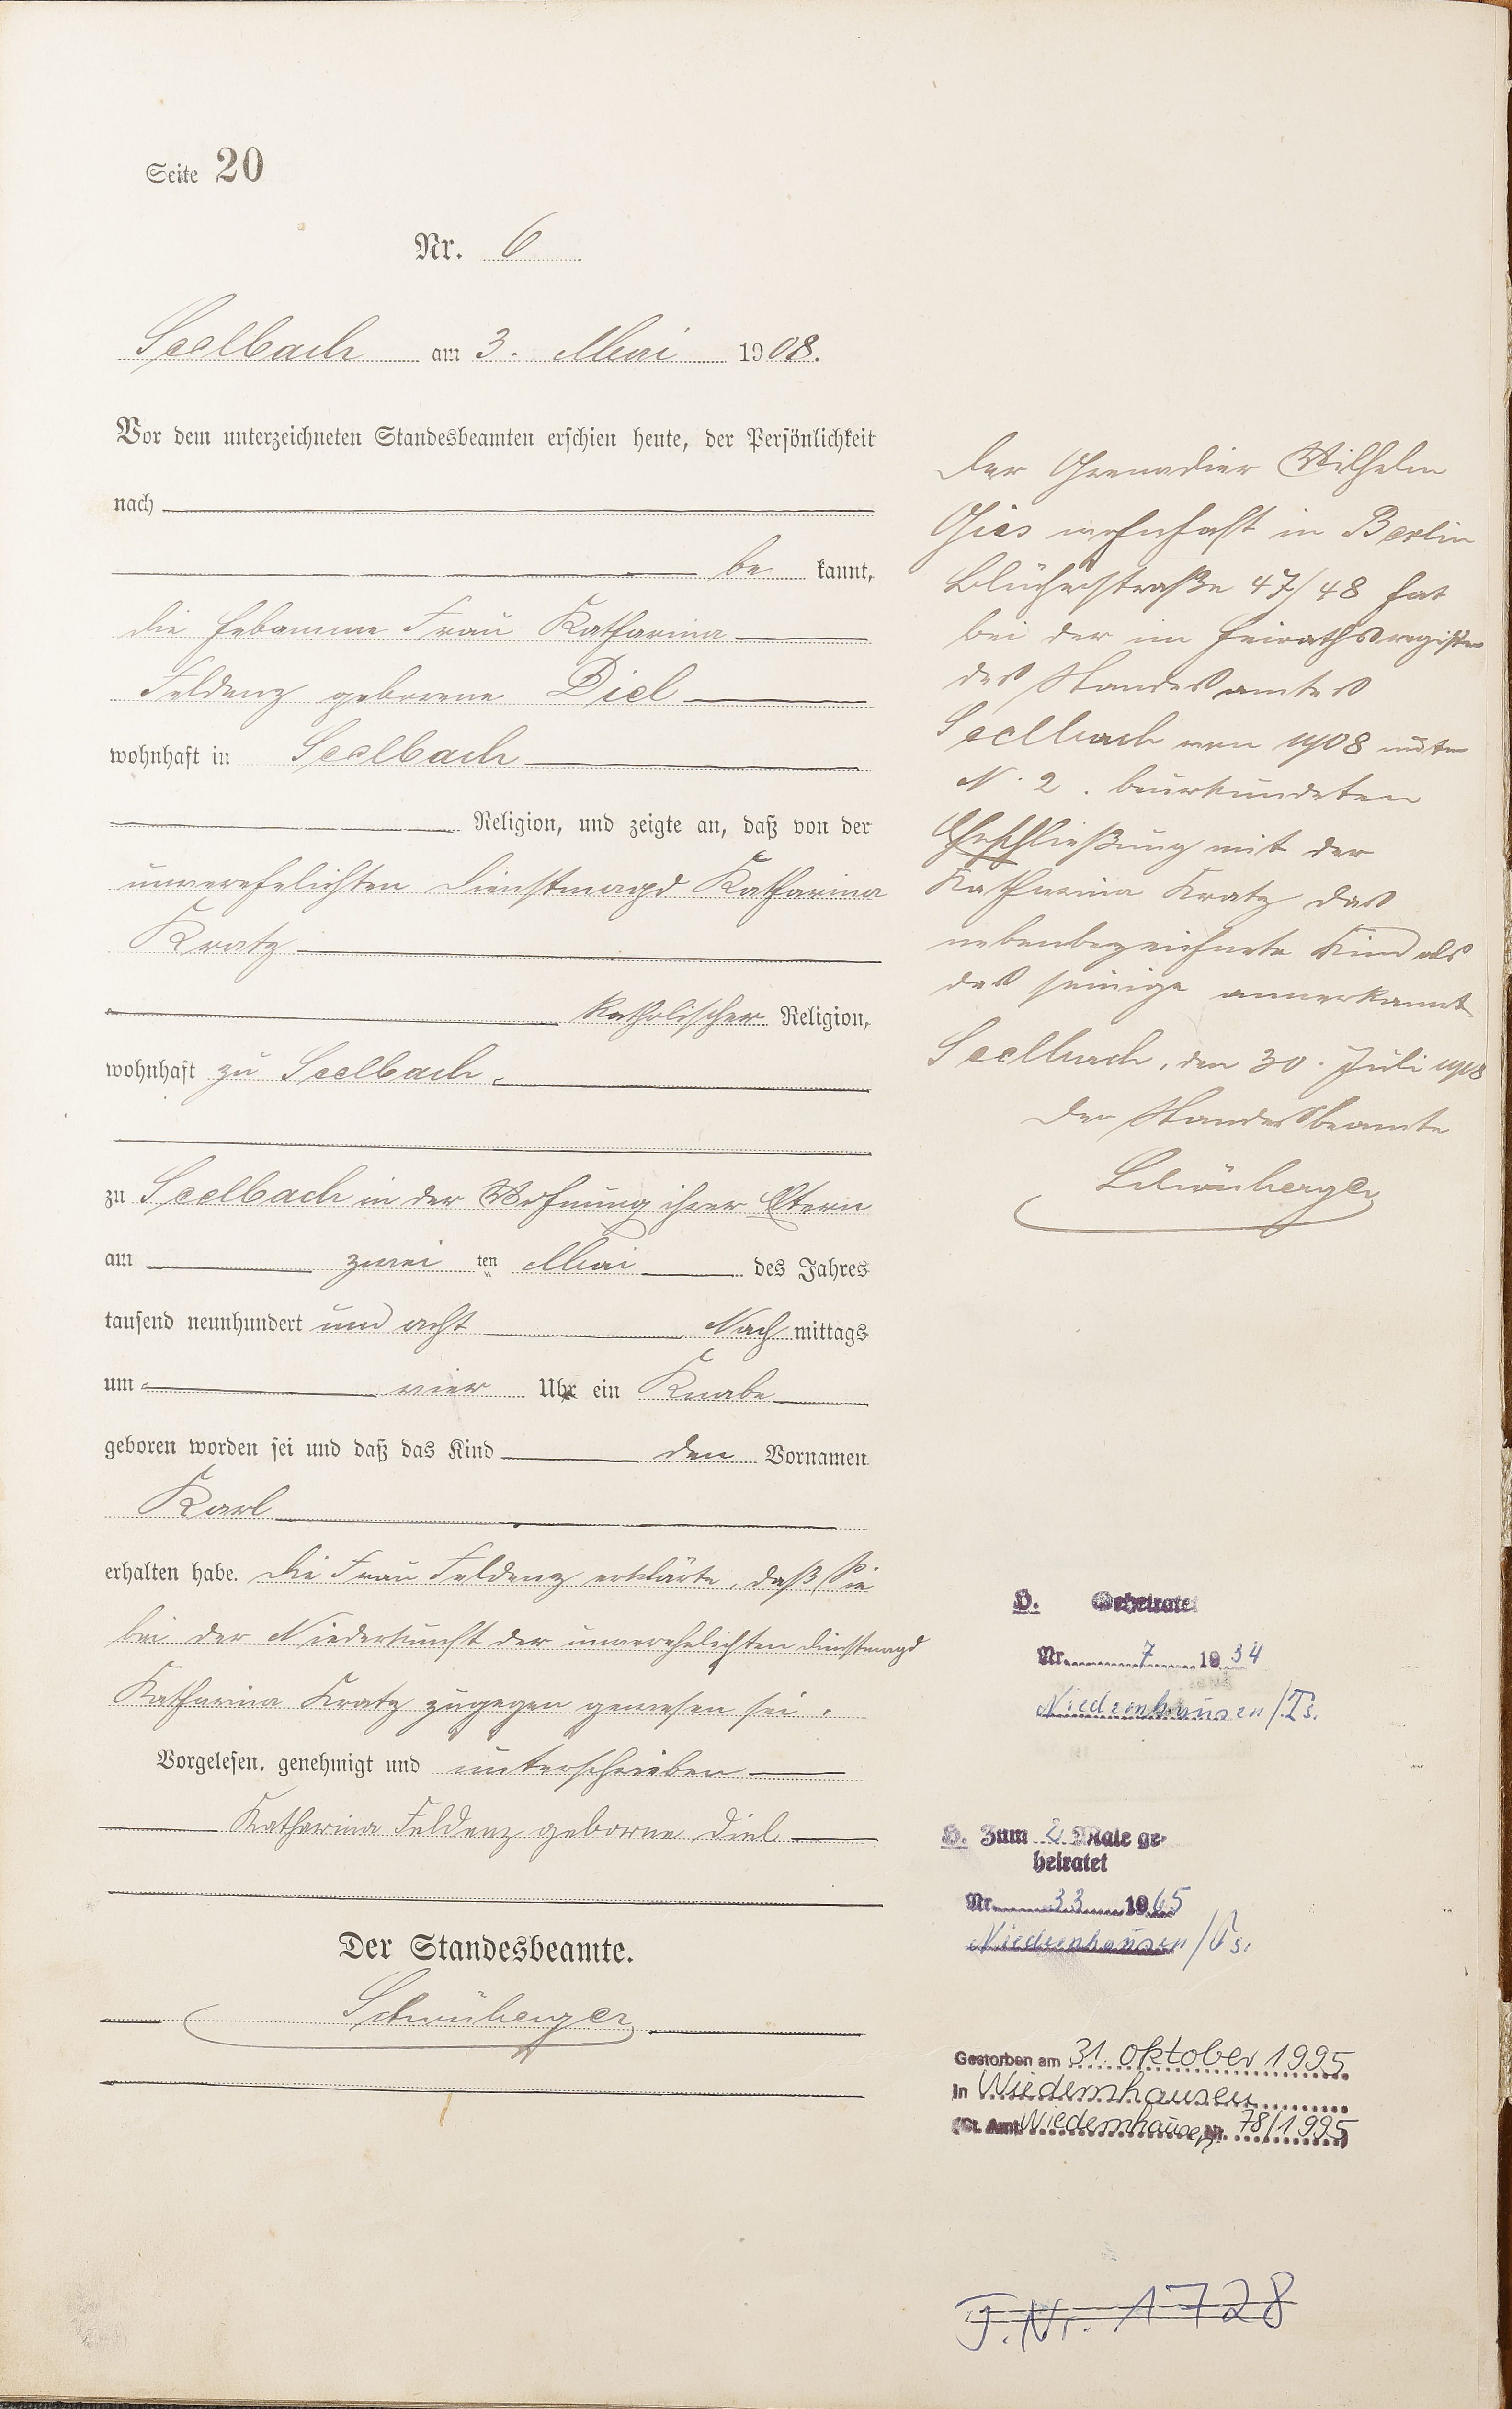 Seite 20
Nr. 6
Seelbach am 3. Mai 1908.
Vor dem unterzeichneten Standesbeamten erschien heute, der Persönlichkeit
nach
be kannt,
die Hebamme Frau Katharina
Feldenz geborene Diel
wohnhaft in Seelbach
Religion, und zeigte an, daß von der
unverehelichten Dienstmagd Katharina
Kratz
katholischer Religion,
wohnhaft zu Seelbach,
zu Seelbach in der Wohnung ihrer Eltern
am zwei ten Mai des Jahres
tausend neunhundert und acht Nach mittags
um vier Uhr ein Knabe
geboren worden sei und daß das Kind den Vornamen
Karl
erhalten habe. Die Frau Feldenz erklärte, daß Sie
bei der Niederkunft der unverehelichten Dienstmagd
Katharina Kratz zugegen gewesen sei.
Vorgelesen, genehmigt und unterschrieben
Katharina Feldenz geborne Diel
Der Standesbeamte.
Der Grenadier Wilhelm
Gies wohnhaft in Berlin
Blücherstraße 47/48 hat
bei der im Heirathsregister
des Standesamtes
Seelbach von 1908 unter
N. 2. beurkundeten
Eheschließung mit der
Katharina Kratz das
nebenbezeichnete Kind als
das seinige annerkannt
Seelbach, den 30. Juli 1908
Der Standesbeamte
H. Geheiratet
Nr. 7 1934
Niedernhausen/Ts.
H. Zum 2 Male ge-
heiratet
Nr. 33 1965
Niedernhausen/Ts.
Gestorben am 31. Oktober 1995
in Niedernhausen
(St. Amt Niedernhausen Nr. 78/1995)
J. Nr. 1728